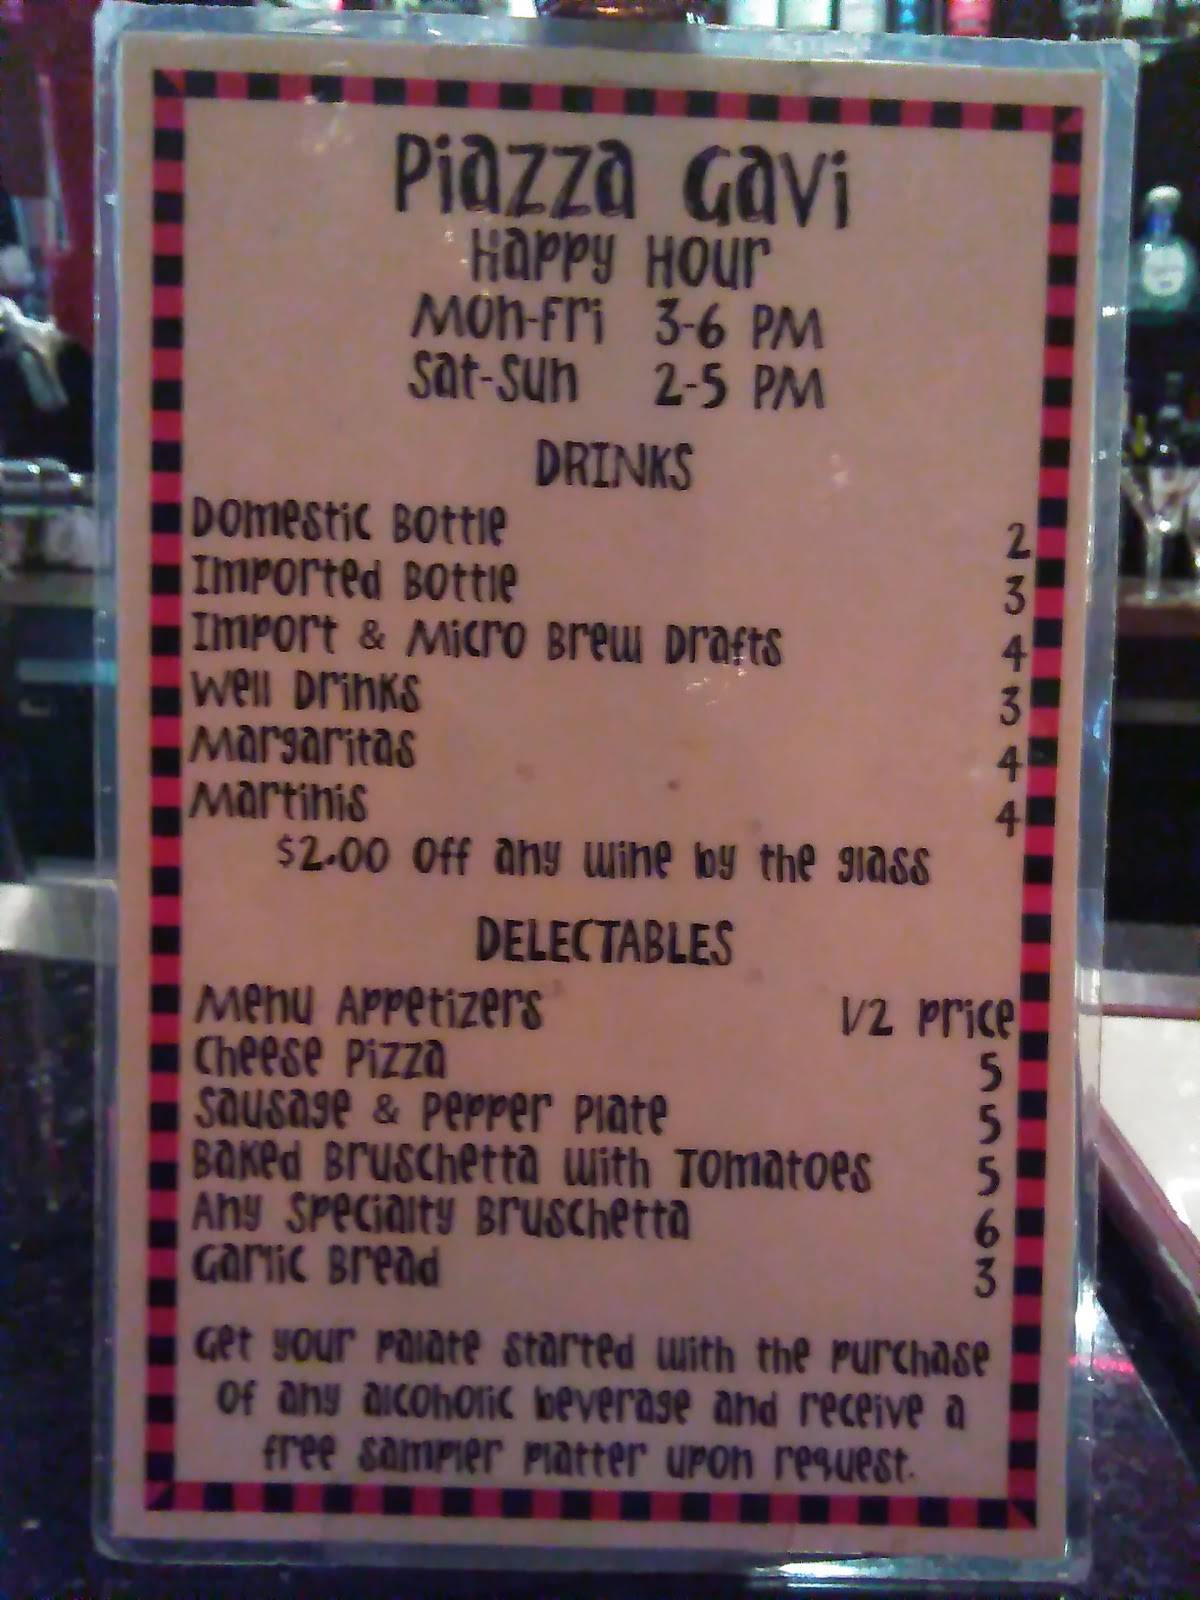 Piazza Gavi
Happy Hour
Mon-Fri 3-6 PM
Sat-Sun 2-5 PM
DRINKS
Domestic Bottle 2
Imported Bottle 3
Import & Micro Brew Drafts 4
Well Drinks 3
Margaritas 4
Martinis 4
$2.00 Off any wine by the glass
DELECTABLES
Menu Appetizers 1/2 Price
Cheese Pizza 5
Sausage & Pepper Plate 5
Baked Bruschetta with Tomatoes 5
Any Specialty Bruschetta 6
Garlic Bread 3
Get your palate started with the purchase
of any alcoholic beverage and receive a
free sampler platter upon request.